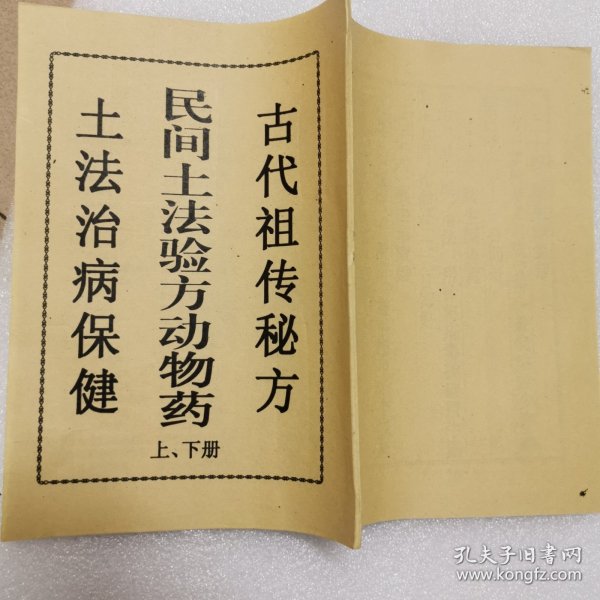 古代祖传秘方
民间土法验方动物药
上、下册
土法治病保健
孔夫子旧书网
www.kongfz.com